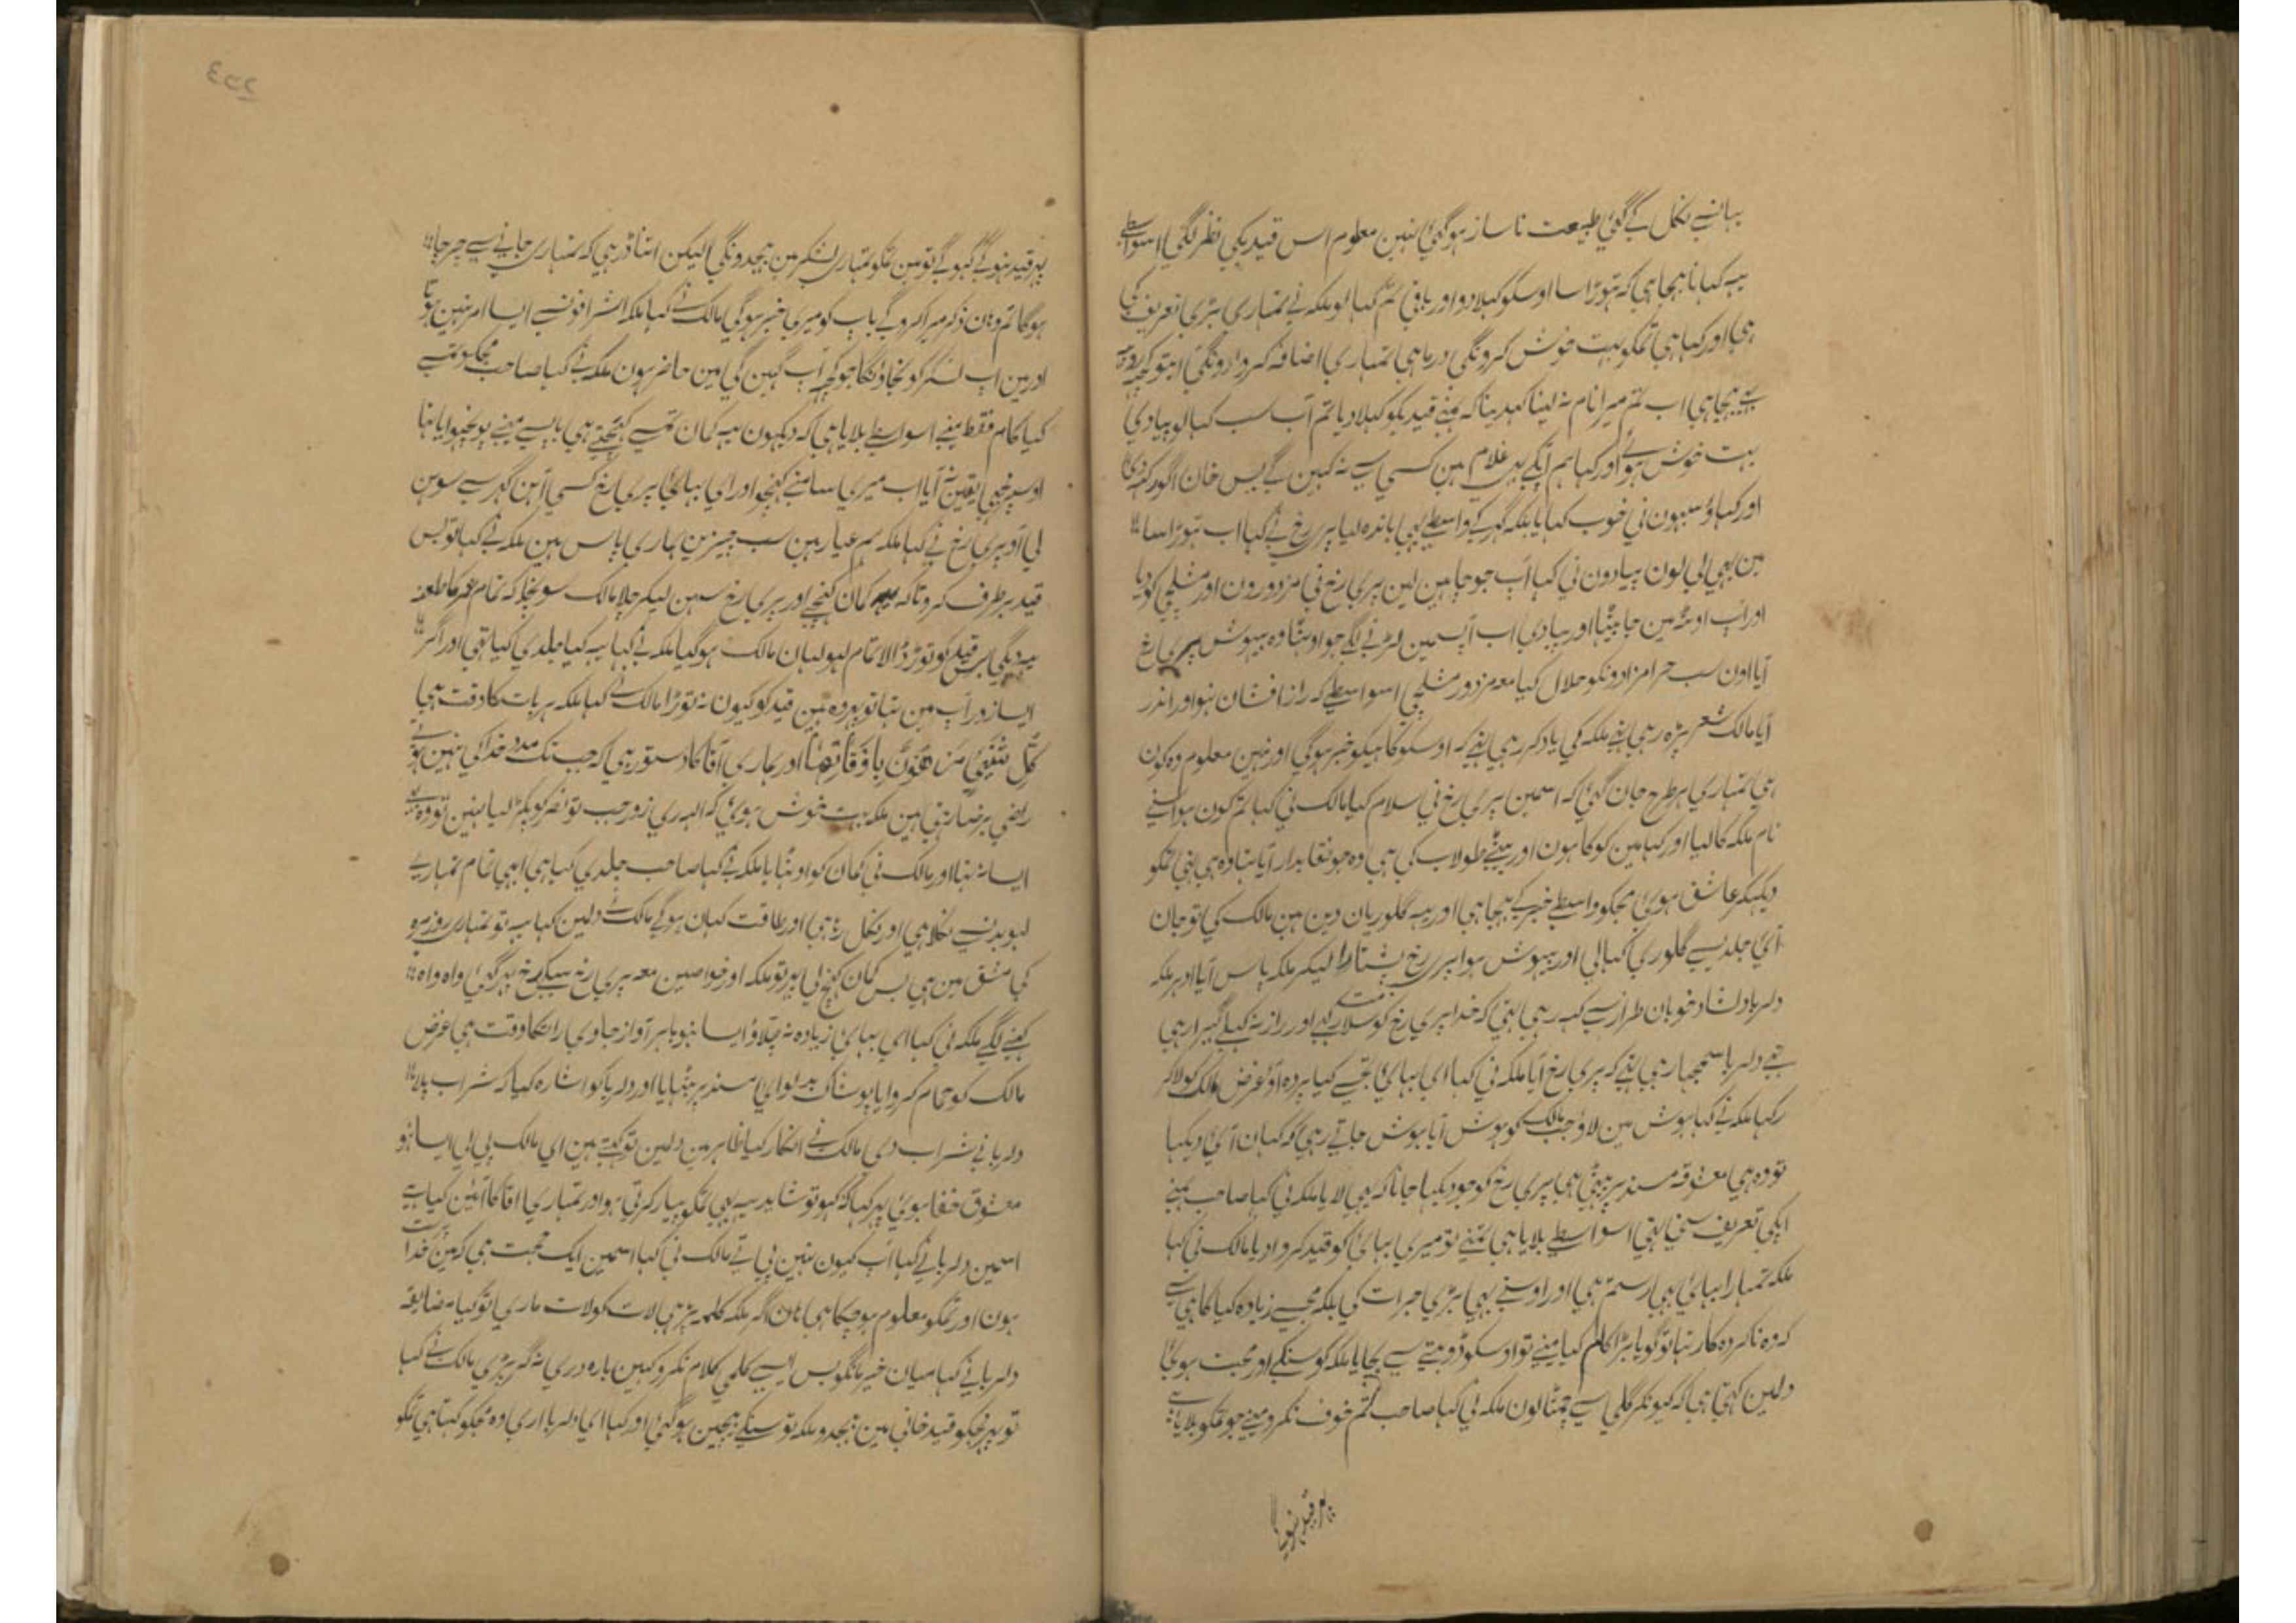 بہانسے نکل کے گئی طبیعت ناساز ہوگئی نہین معلوم اس قیدیکی نظر لگی اسواسطے
یہہ کہانا بہیجا ہی کہ تہوڑا سا اوسکو کہلا دو اور باقی تم کہا لو ملکہ نے تمہاری بڑی تعریف کی
ہی اور کہا ہی تمکو بہت خوش کرونگی درماہی تمہاری اضافہ کروا دونگی ابتو کچہہ
بہیجا ہی اب تم میرا نام نہ لینا کہدینا کہ ہمنے قیدیکو کہلا دیا تم آب سب کہا لو پیادی
بہت خوش ہوئے اور کہا ہم آپکے غلام ہین کسی سے نہ کہین گے پس خان اگور کہدیا
اور کہاؤ سبہون نی خوب کہایا بلکہ گہر کے واسطے بہی باندہ لیا پری رخ نے کہا اب تہوڑا سا
مین بہی لی لون پیادون نی کہا آپ جو چاہین لین پری رخ نی مزدورون اور مشلچی کو دیا
اور آپ اوٹ مین جا بیٹہا اور پیادی اب آپسمین لڑنے لگے جو اوٹہا وہ بیہوش پری رخ
آیا اون سب حرامزادونکو حلال کیا معہ مزدور مشلچی اسواسطے کہ راز افشان نہو اور اندر
آیا مالک شعر پڑہ رہی تہے ملکہ کی یاد کر رہی تہے کہ اوسکو کاہیکو خبر ہوگی اور نہین معلوم وہ کون
ہی تمہاری طرح جان گئی کہ اسمین پری رخ نی سلام کیا مالک نی کہا تم کون ہو اسنے
نام ملکہ کا لیا اور کہا مین کوکا ہون اور بیٹے طولاب کی ہی وہ جو نقابدار آیا تہا وہ ہی تہی تمکو
دیکہکر عاشق ہوئی مجکو واسطے خبر کے بہیجا ہی اور یہہ گلوریان دین ہین مالک کی تو جان
آئی جلدیسے گلوری کہا لی اور بیہوش ہوا پری رخ پشتارا لیکر ملکہ پاس آیا ادہر ملکہ
دلربا دلشاد خوبان طراز سے کہہ رہی تہی کہ خدا پری رخ کو سلامت رکہے اور راز نہ کہلے گہبرا رہی
تہے دلربا سمجہا رہی تہے کہ پری رخ آیا ملکہ نی کہا ای بہائی تجسے کیا پردہ آؤ غرض مالک کو لاکر
رکہا ملکہ نے کہا ہوش مین لاؤ جب مالک کو ہوش آیا ہوش جاتے رہی کہ کہان آئی دیکہا
تو وہ ہی معشوقہ مسند پر بیٹہی ہی پری رخ کو جو دیکہا جانا کہ یہی لایا ملکہ نی کہا صاحب ہمنے
آپکی تعریف سنی تہی اسواسطے بلایا ہی تمنے تو میری بہائی کو قید کروا دیا مالک نی کہا
ملکہ تمہارا بہائی بہی رستم ہی اور اوسنے بہی بڑی جرات کی بلکہ مجسے زیادہ کیا کاہیسے
کہ وہ ناکردہ کار تہا تو گویا بڑا کام کیا مینے تو اوسکو ڈوبتے سے بچایا ملکہ کو سنکے اور محبت ہوئی
دلمین کہتی ہی کہ کیونکر گلی سے چمٹا لون ملکہ نی کہا صاحب تم خوف نکرو مینے جو تمکو بلایا ہے
پہر قید نہو
پہر قید نہوگے کہو گے تو مین تمکو تمہاری لشکر مین بہیجدونگی لیکن اتنا ڈر ہی کہ تمہاری جانیسے چرچا
ہوگا تم وہان ذکر میرا کروگے باپ کو میری خبر ہوگی مالک نے کہا ملکہ اشرافونسے ایسا امر نہین ہوتا
اور مین اب لشکر کو نجاؤنگا جو کچہہ آپ کہین گی مین حاضر ہون ملکہ نے کہا صاحب مجکو تمسے
کیا کام فقط مینے اسواسطے بلایا ہی کہ دیکہون یہہ کمان تمسے کہنچتی ہی باپسے مینے پوچہوایا تہا
اوسپر بہی یقین نہ آیا اب میری سامنے کہنچو اور ای بہائی پری رخ کسی آہن گہر سے سوہن
لی آؤ پری رخ نے کہا ملکہ ہم عیار ہین سب چیزین ہماری پاس ہین ملکہ نے کہا تو بس
قید برطرف کرو تاکہ کمان کہنچے اور پری رخ سوہن لیکر چلا مالک سونچا کہ تمام عمر کا طعنہ
یہہ دیگی بس قید کو توڑ ڈالا تمام لہولہان مالک ہوگیا ملکہ نے کہا یہہ کیا جلدی کیا تہی اور اگر
ایسا زور آپ مین تہا تو پہر وہین قید کو کیون نہ توڑا مالک نے کہا ملکہ ہر بات کا وقت ہی
کُلُّ شَیْءٍ مَرْهُوْنٌ بِاَوْقَاتِهَا اور ہماری آقا کا دستور ہی کہ جب تک مدد خدا کی نہین ہوتی
راضی برضا رہتی ہین ملکہ بہت خوش ہوئی کہ الہہ ری زور جب تو نصر کو پکڑ لیا نہین تو وہ
ایسا نہ تہا اور مالک نی کمان کو اوٹہایا ملکہ نے کہا صاحب جلدی کیا ہی ابہی تمام تمہاری
لہو بدنسے نکلا ہی اور نکل رہا ہی اور طاقت کہان ہوگی مالک نے دلمین کہا یہہ تو تمہاری روبرو
کی مشق مین ہی بس کمان کہنچ لی پہر تو ملکہ اور خواصین معہ پری رخ سبکے رخ پہر گئی واہ واہ
کہنے لگے ملکہ نی کہا ای بہائی زیادہ نہ چلاؤ ایسا نہو باہر آواز جاوی رات کا وقت ہی غرض
مالک کو حمام کروایا پوشاک بدلوائی مسند پر بٹہایا اور دلربا کو اشارہ کیا کہ شراب پلا
دلربا نے شراب دی مالک نے انکار کیا ظاہر مین دلمین تو کہتے ہین ای مالک پی لی ایسا نہو
معشوق خفا ہوئی پہر کہا کہ کہو تو شاید یہہ بہی تمکو پیار کرتی ہو اور تمہاری آقا کا آئین کیا ہے
اسمین دلربا نے کہا آپ کیون نہین پی تے مالک نی کہا اسمین ایک حجت ہی کہ مین خدا پرست
ہون اور تمکو معلوم ہو چکا ہی ہان اگر ملکہ کلمہ پڑہی لات کو لات ماری تو کیا مضائقہ
دلربا نے کہا میان خیر مانگو بس ایسے کلمی کلام نکرو کہین بارہ دری نہ گر پڑی مالک نے کہا
تو پہر مجکو قید خانی مین بہیجدو ملکہ تو سنکے بیچین ہوگئی اور کہا ای دلربا اری وہ مجکو کہتا ہی تمکو